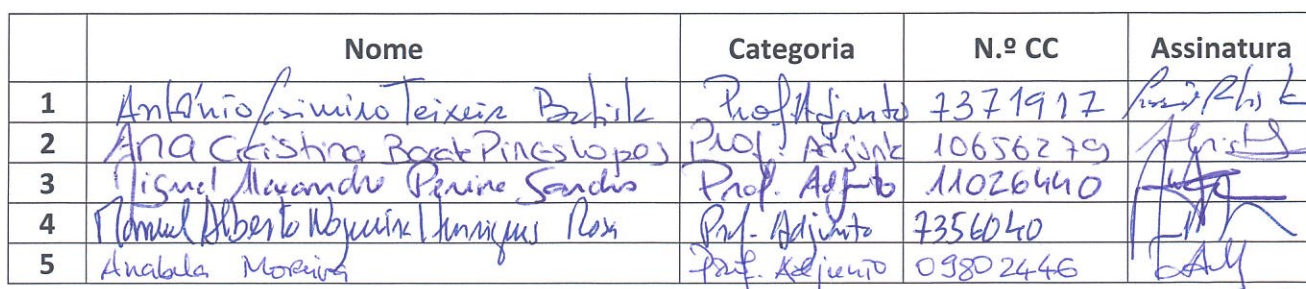 Nome Categoria N.º CC Assinatura
1 António Casimiro Teixeira Batista Prof Adjunto 7371917
2 Ana Cristina Pires Lopes Prof. Adjunta 10656279
3 Miguel Alexandre Pereira Prof. Adjunto 11026440
4 Manuel Alberto Nogueira Henriques Rosa Prof. Adjunto 7356040
5 Anabela Moreira Prof. Adjunto 09802446